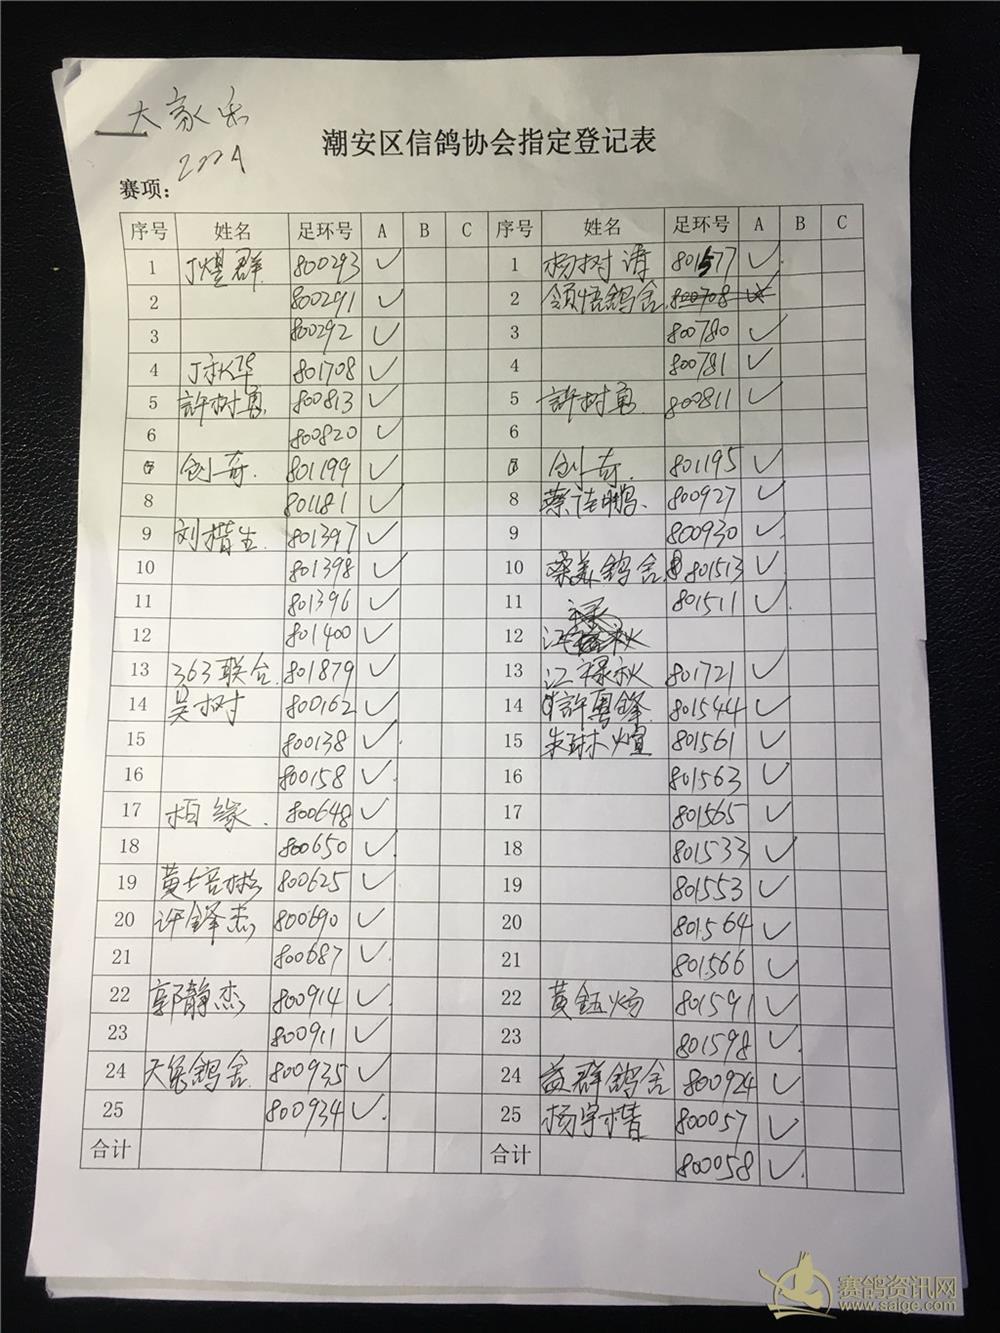 大家乐
200A
潮安区信鸽协会指定登记表
赛项:
序号 姓名 足环号 A B C 序号 姓名 足环号 A B C
1 丁煜群 800293 ✓ 1 杨树涛 801577 ✓
2 800291 ✓ 2 领悟鸽舍 800708
3 800292 ✓ 3 800780 ✓
4 丁秋华 801708 ✓ 4 800781 ✓
5 許树勇 800813 ✓ 5 許树勇 800811 ✓
6 800820 ✓ 6
7 创奇. 801199 ✓ 7 创奇. 801195 ✓
8 801181 ✓ 8 蔡佳鹏. 800927 ✓
9 刘楷生. 801397 ✓ 9 800930 ✓
10 801398 ✓ 10 荣美鸽舍 801513 ✓
11 801396 ✓ 11 801511 ✓
12 801400 ✓ 12 江
13 363联合. 801879 ✓ 13 江禄秋 801721 ✓
14 吴树 800162 ✓ 14 許粤锋 801544 ✓
15 800138 ✓ 15 朱琳煊 801561 ✓
16 800158 ✓ 16 801563 ✓
17 栢缘. 800648 ✓ 17 801565 ✓
18 800650 ✓ 18 801533 ✓
19 黄培彬 800625 ✓ 19 801553 ✓
20 许锋杰 800690 ✓ 20 801564 ✓
21 800687 ✓ 21 801566 ✓
22 郭静杰 800914 ✓ 22 黄钰炀 801591 ✓
23 800911 ✓ 23 801598 ✓
24 天兔鸽舍 800935 ✓ 24 益群鸽舍 800924 ✓
25 800934 ✓ 25 杨宇楷 800057 ✓
合计 合计 800058 ✓
赛鸽资讯网
www.saige.com